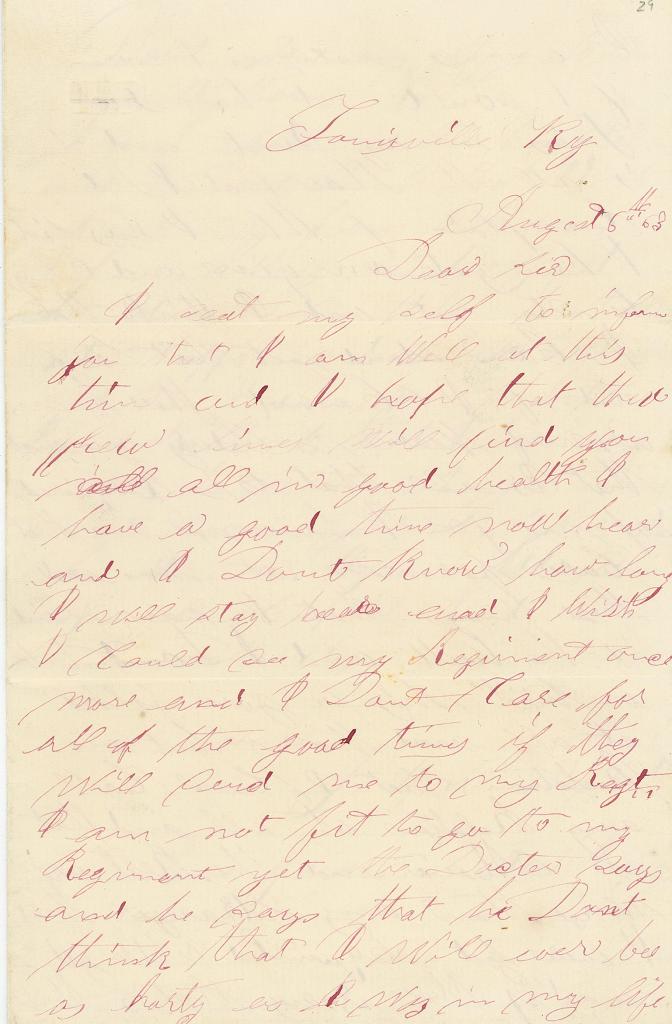 29
Louisville Ky
August 6th "63
Dear Sir
I seat my self to inform
you that I am Well at this
time and I hope that thes
few lines Will find you
all in good health I
have a good time now hear
and I Dont Know how long
I will stay heare and I Wish
I Could see my Regiment once
more and I Dont Care for
all of the good times if they
Will Send me to my Regt.
I am not fit to go to my
Regiment yet the Docter says
and he says that he Dont
think that I Will ever bee
as harty as I Was in my life